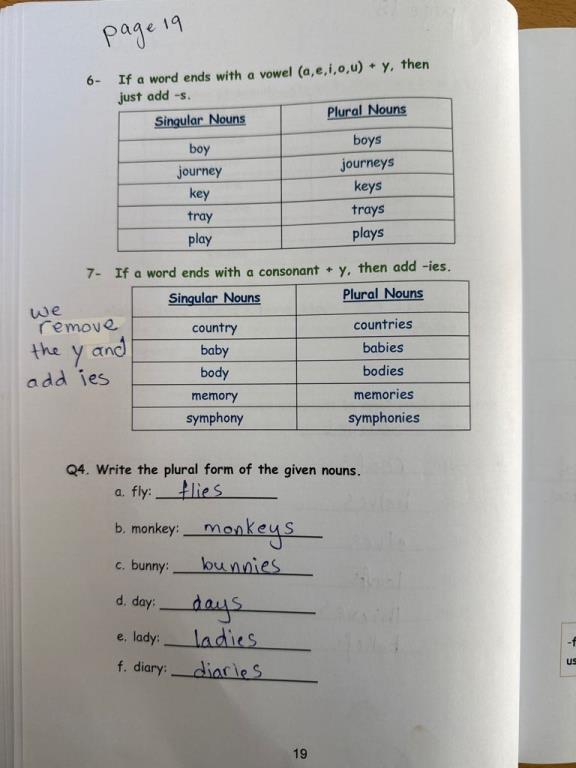 page 19
6- If a word ends with a vowel (a,e,i,o,u) + y, then
just add -s.
Singular Nouns Plural Nouns
boy boys
journey journeys
key keys
tray trays
play plays
7- If a word ends with a consonant + y, then add -ies.
Singular Nouns Plural Nouns
country countries
baby babies
body bodies
memory memories
symphony symphonies
we
remove
the y and
add ies
Q4. Write the plural form of the given nouns.
a. fly: flies
b. monkey: monkeys
c. bunny: bunnies
d. day: days
e. lady: ladies
f. diary: diaries
19
-f
us